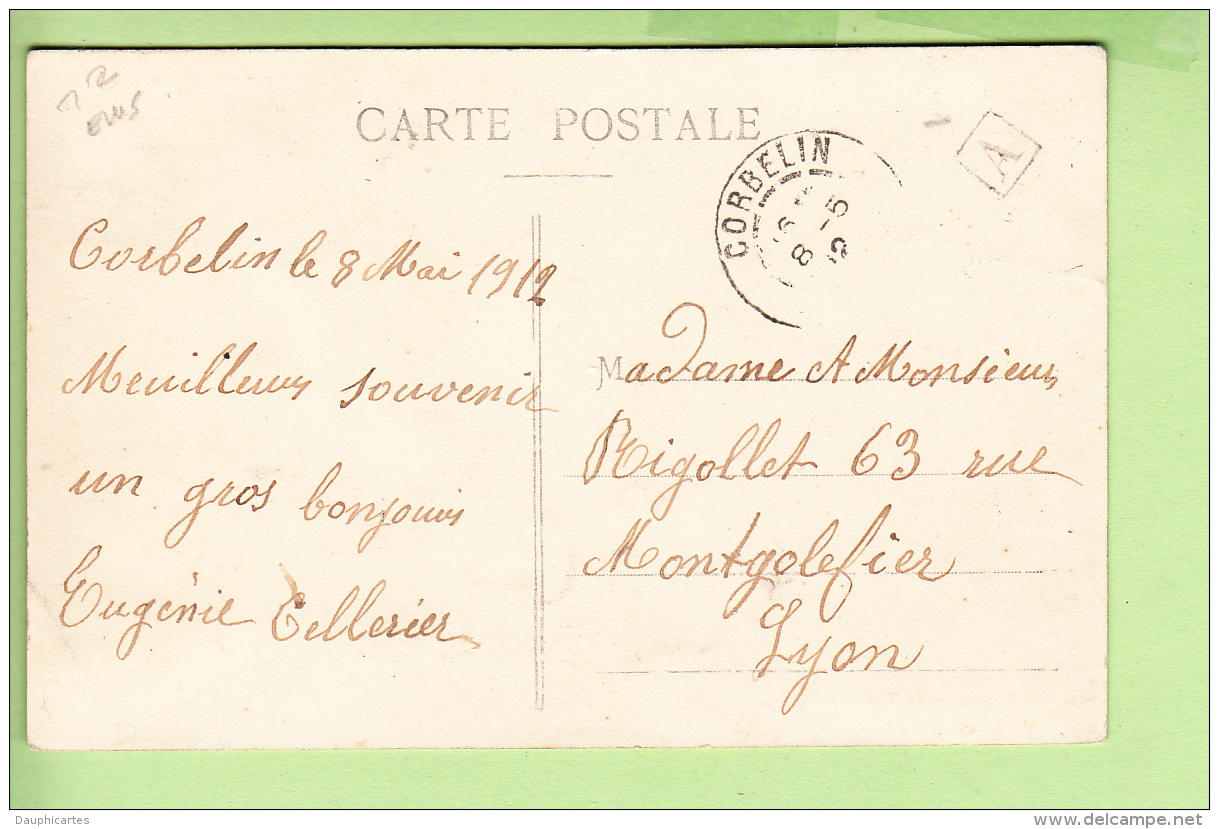 CARTE POSTALE
CORBELIN
A
Corbelin le 8 Mai 1912
Meuilleurs souvenir
un gros bonjours
Eugénie Cellerier
Madame A Monsieur
Rigollet 63 rue
Montgolefier
Lyon
Dauphicartes
www.delcampe.net